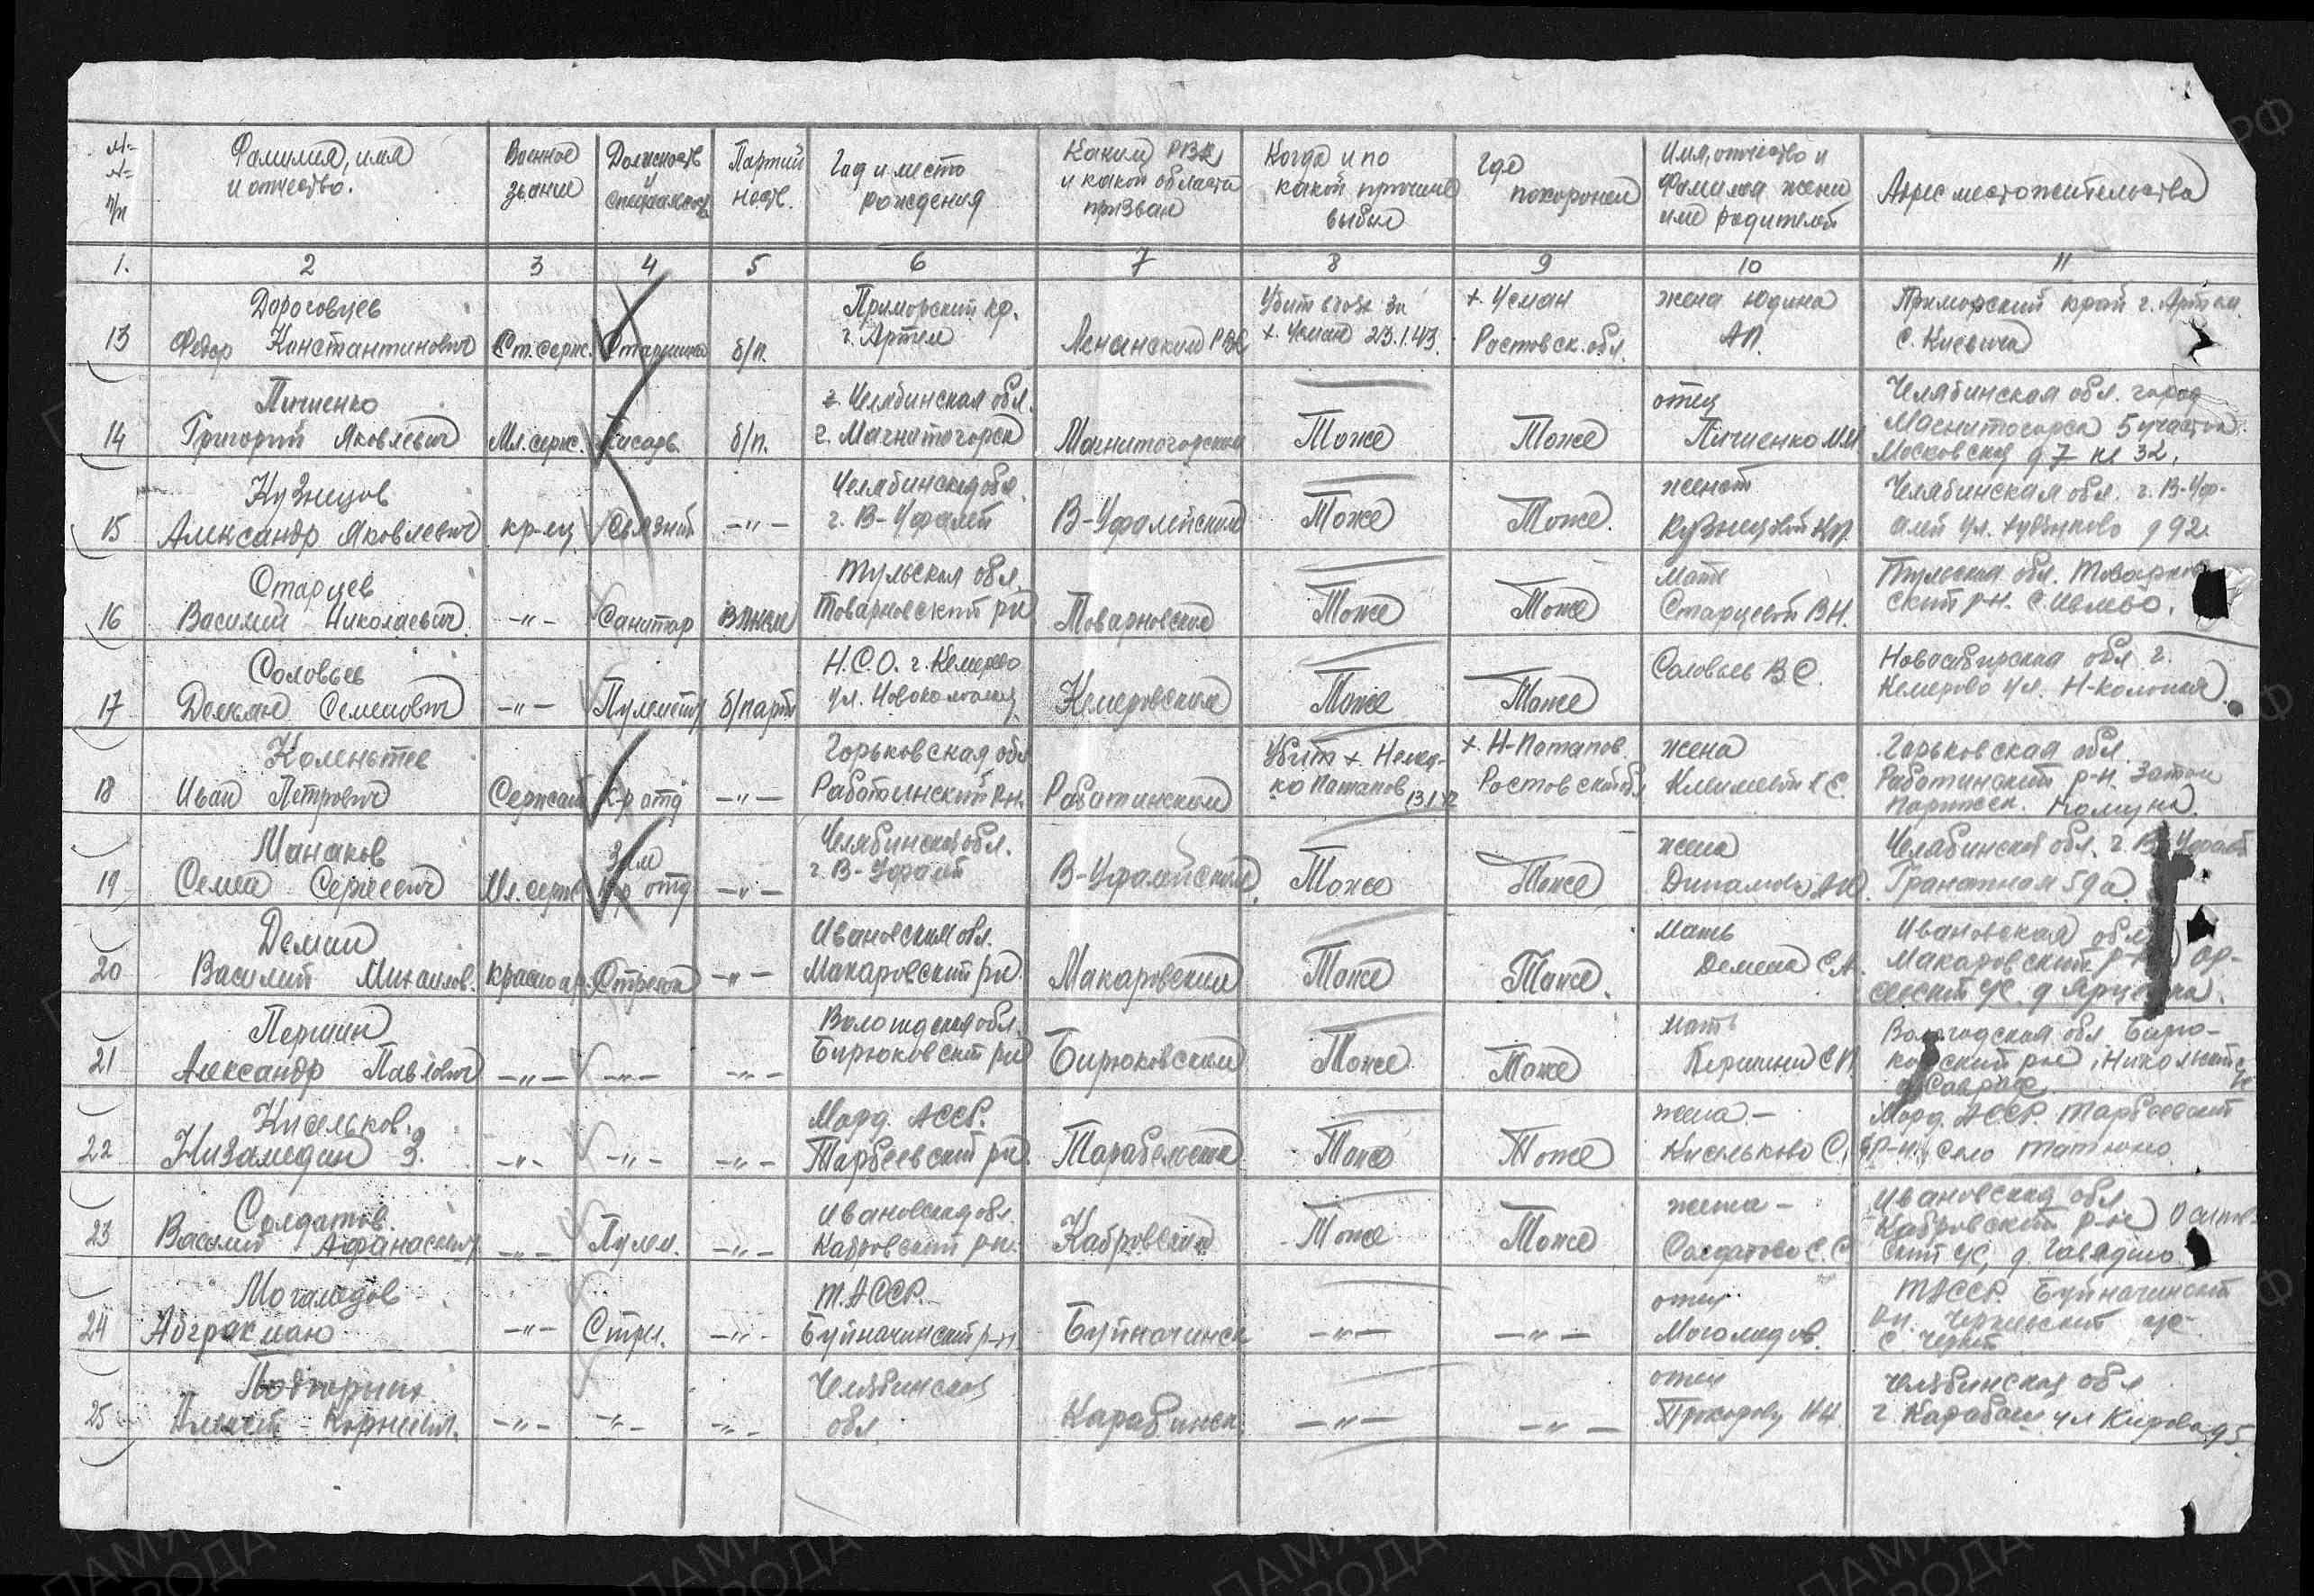 № № п/п
Фамилия, имя и отчество.
Военное звание
Должность и специальность
Партийность.
Год и место рождения
Каким РВК и какой области призван
Когда и по какой причине выбыл
Где похоронен
Имя, отчество и фамилия жены или родителей
Адрес местожительства
1. 2 3 4 5 6 7 8 9 10 11
13 Дороговцев Федор Константинович Ст. серж. Старшина б/п. Приморский кр. г. Артем Ленинский РВК Убит в бою за х. Усман 23.1.43. х. Усман Ростовск. обл. жена Юдина А.П. Приморский край г. Артем. С. Кневича
14 Григорий Яковлевич Мл. серж. Писарь б/п. Челябинская обл. г. Магнитогорск Магнитогорский Тоже Тоже отец Челябинская обл. город Магнитогорск 5 участок Московская д 7 кв 32.
15 Кузнецов Александр Яковлевич кр-ец Связной —"— Челябинская обл. г. В-Уфалей В-Уфалейским Тоже Тоже. Кузнецовой Челябинская обл. г. В-Уфалей ул. д 92.
16 Старцев Василий Николаевич —"— Санитар ВЛКСМ Тульская обл. Товарковский рн Товарковский Тоже Тоже Мать Старцевой В.Н. Тульская обл. Товарковский р-н.
17 Соловьев Демьян Семенович —"— Пулеметч б/парт Н.С.О. г. Кемерово ул. Новоколония Кемеровский Тоже Тоже Соловьев В С. Новосибирская обл г. Кемерово ул. Н-колония.
18 Иван Петрович Сержант К-р отд —"— Горьковская обл Работинский р-н. Работинский Убит х. Потапов 13.1. х. Н-Потапов Ростовской обл жена Горьковская обл. Работинский р-н. Затон Парижск. Комуна.
19 Манаков Семен Сергеевич Мл. серж Зам к-р отд —"— Челябинская обл. г. В-Уфалей В-Уфалейский. Тоже Тоже жена Челябинская обл. г В-Уфалей Гранатная 59а
20 Демин Василий Михайлов. Красноар. Стрелок —"— Ивановская обл. Макаровский рн Макаровский Тоже Тоже. Мать Демина С.А. Ивановская обл. Макаровский р-н
21 Першин Александр Павлович —"— —"— —"— Вологодская обл. Бирюковский рн Бирюковский Тоже Тоже мать Першиной С П Вологодская обл. Бирюковский рн Никольский
22 Кисельков. Низамедин З. —"— —"— —"— Морд. АССР. Тарбеевский рн. Тоже Тоже жена — Киселькова С. Морд. АССР. Тарбеевский р-н. Село
23 Солдатов. Василий Афанасьевич —"— Пулем. —"— Ивановская обл. Кабровский рн. Кабровский Тоже Тоже жена — Солдатова Е.С. Ивановская обл Кабровский р-н
24 Могамедов Абдракман —"— Стрел. —"— Т. АССР. Буйначинский р-н. Буйначинск —"— —"— отец Могомедов. ТАССР. Буйначинский рн.
25 Алексей —"— —"— —"— Челябинская обл Карабинск. —"— —"— отец Челябинская обл г. Карабаш ул Кирова д 5.